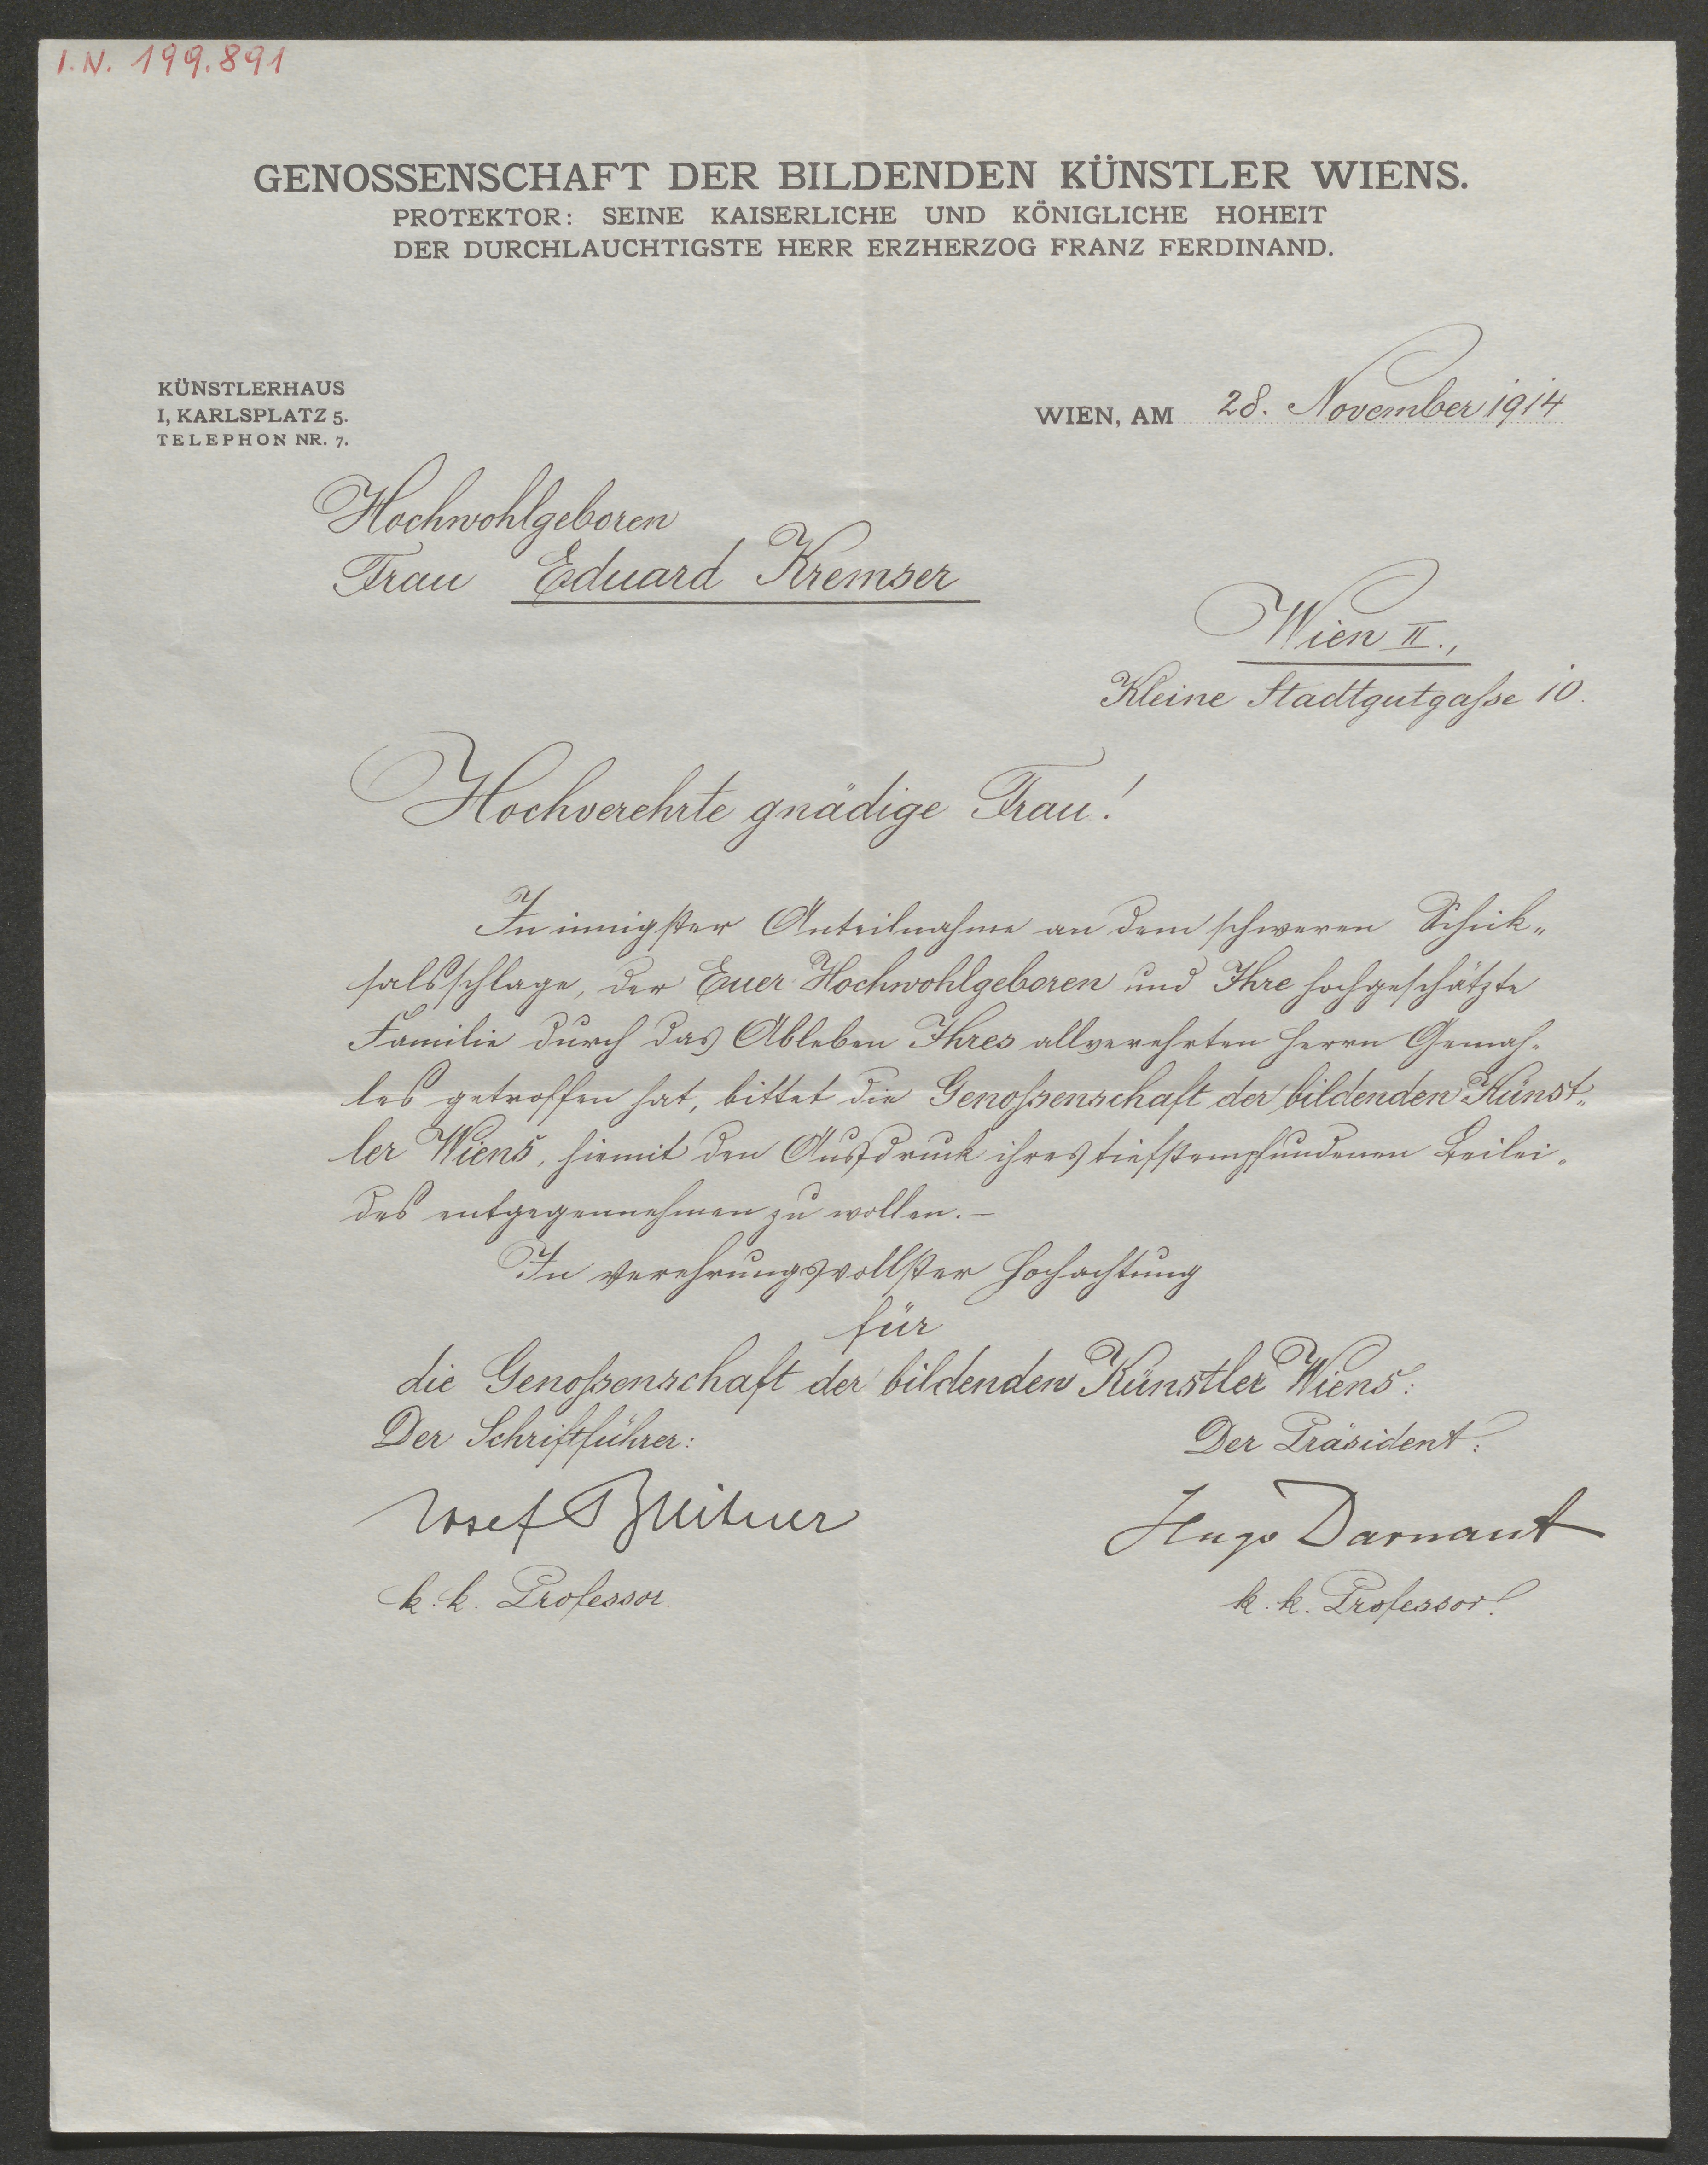 I.N. 199.891
GENOSSENSCHAFT DER BILDENDEN KÜNSTLER WIENS.
PROTEKTOR: SEINE KAISERLICHE UND KÖNIGLICHE HOHEIT
DER DURCHLAUCHTIGSTE HERR ERZHERZOG FRANZ FERDINAND.
KÜNSTLERHAUS
I, KARLSPLATZ 5.
TELEPHON NR. 7.
WIEN, AM 28. November 1914
Hochwohlgeboren
Frau Eduard Kremser
Wien II.,
Kleine Stadtgutgasse 10.
Hochverehrte gnädige Frau!
In innigster Anteilnahme an dem schweren Schick-
salsschlage, der Euer Hochwohlgeboren und Ihre hochgeschätzte
Familie durch das Ableben Ihres allverehrten Herrn Gemah-
les getroffen hat, bittet die Genossenschaft der bildenden Künst-
ler Wiens, hiemit den Ausdruck ihres tiefstempfundenen Beilei-
des entgegennehmen zu wollen.–
In verehrungsvollster Hochachtung
für
die Genossenschaft der bildenden Künstler Wiens:
Der Schriftführer:
Der Präsident:
Josef
Hugo Darnaut
k.k. Professor.
k.k. Professor.